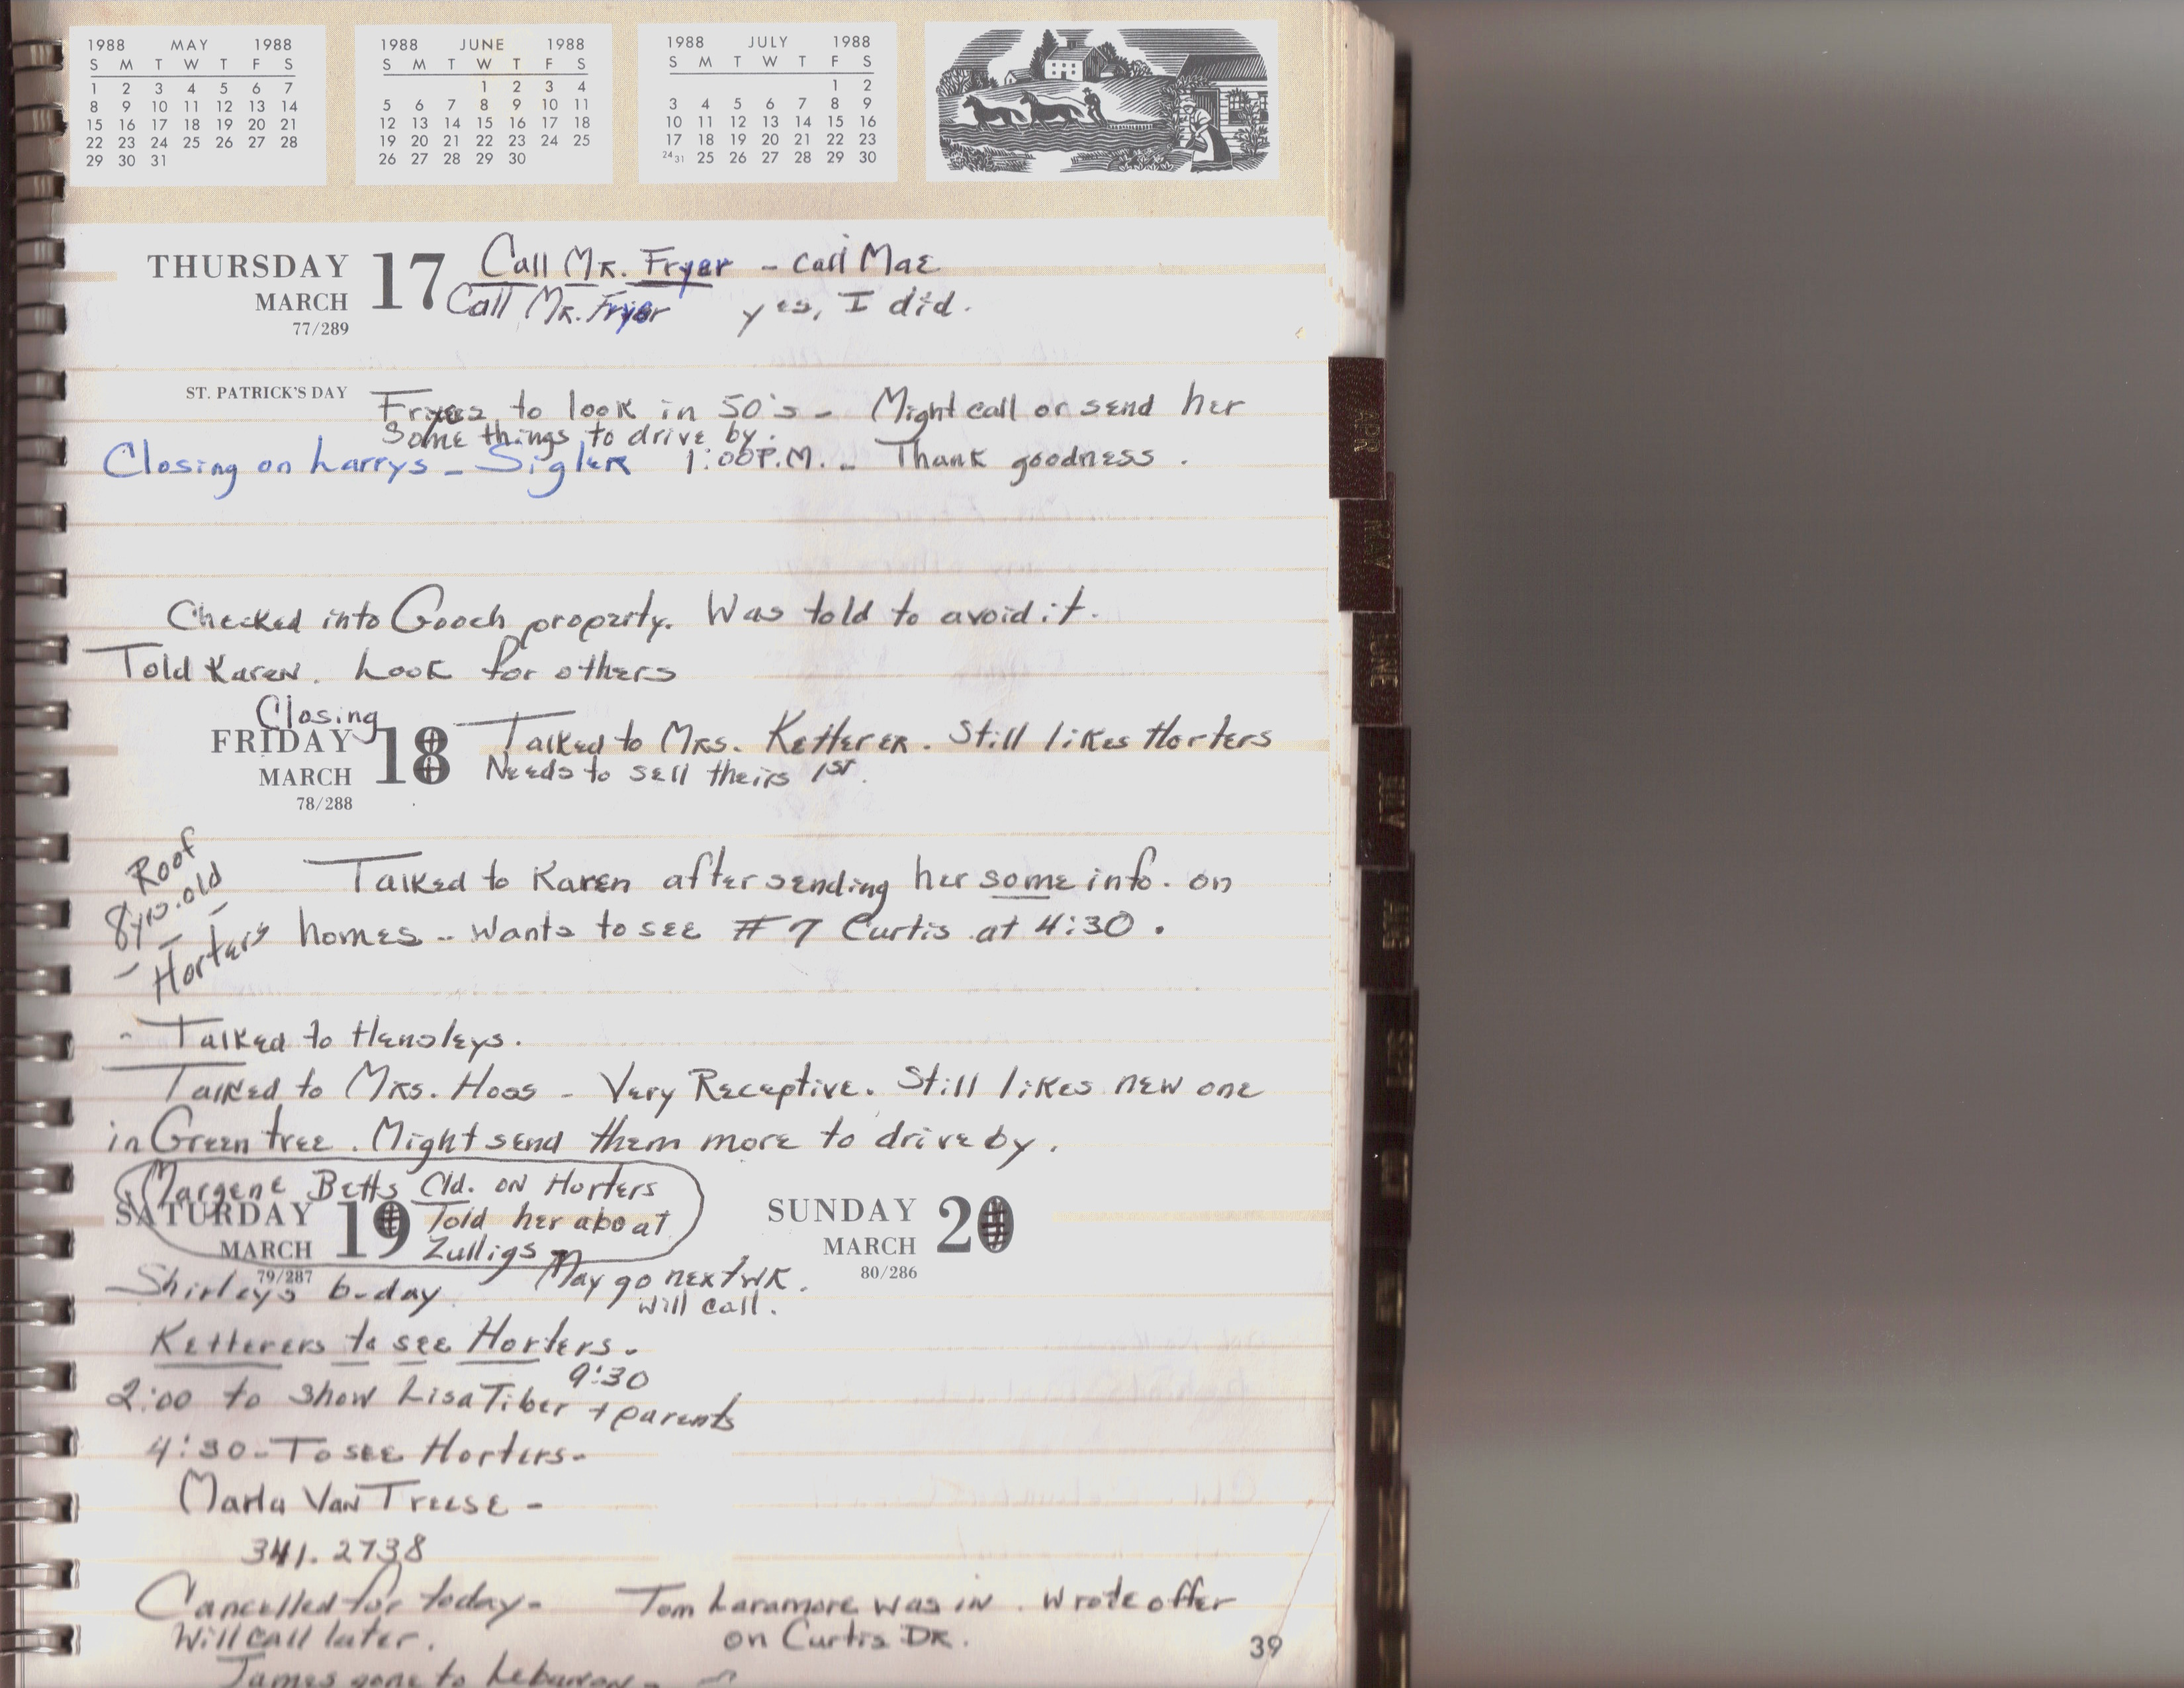 1988 MAY 1988
S M T W T F S
1 2 3 4 5 6 7
8 9 10 11 12 13 14
15 16 17 18 19 20 21
22 23 24 25 26 27 28
29 30 31
1988 JUNE 1988
S M T W T F S
1 2 3 4
5 6 7 8 9 10 11
12 13 14 15 16 17 18
19 20 21 22 23 24 25
26 27 28 29 30
1988 JULY 1988
S M T W T F S
1 2
3 4 5 6 7 8 9
10 11 12 13 14 15 16
17 18 19 20 21 22 23
24 31 25 26 27 28 29 30
THURSDAY 17 Call Mr. Fryer - Call Mae
MARCH Call Mr. Fryer yes, I did.
77/289
ST. PATRICK'S DAY
Fryers to look in 50's - Might call or send her
Some things to drive by.
Closing on Larrys - Sigler 1:00 P.M. - Thank goodness.
Checked into Gooch property. Was told to avoid it.
Told Karen. Look for others
Closing
FRIDAY 18 Talked to Mrs. Ketterer. Still likes Horters
MARCH Needs to sell theirs 1st.
78/288
Roof
8 yrs. old
- Horters
Talked to Karen after sending her some info. on
homes - Wants to see #7 Curtis at 4:30.
- Talked to Hensleys.
Talked to Mrs. Hoos - Very Receptive. Still likes new one
in Green tree. Might send them more to drive by.
Margene Betts Cld. on Horters
SATURDAY 19 Told her about
MARCH Zulligs -
79/287
May go next wk.
Will call.
SUNDAY 20
MARCH
80/286
Shirleys b-day.
Ketterers to see Horters -
9:30
2:00 to show Lisa Tiber + parents
4:30 - To see Horters -
Marla Van Treese -
341.2738
Cancelled for today -
Will call later.
Tom Laramore was in. Wrote offer
on Curtis Dr.
James gone to Lebanon -
39
APR
MAY
JUNE
JULY
AUG
SEP